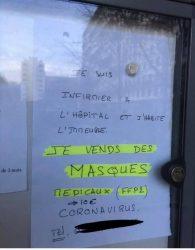 JE SUIS
INFIRMIER À
L'HÔPITAL ET J'HABITE
L'IMMEUBLE.
JE VENDS DES
MASQUES
MEDICAUX (FFP2)
→ 10€
CORONAVIRUS.
Tél.